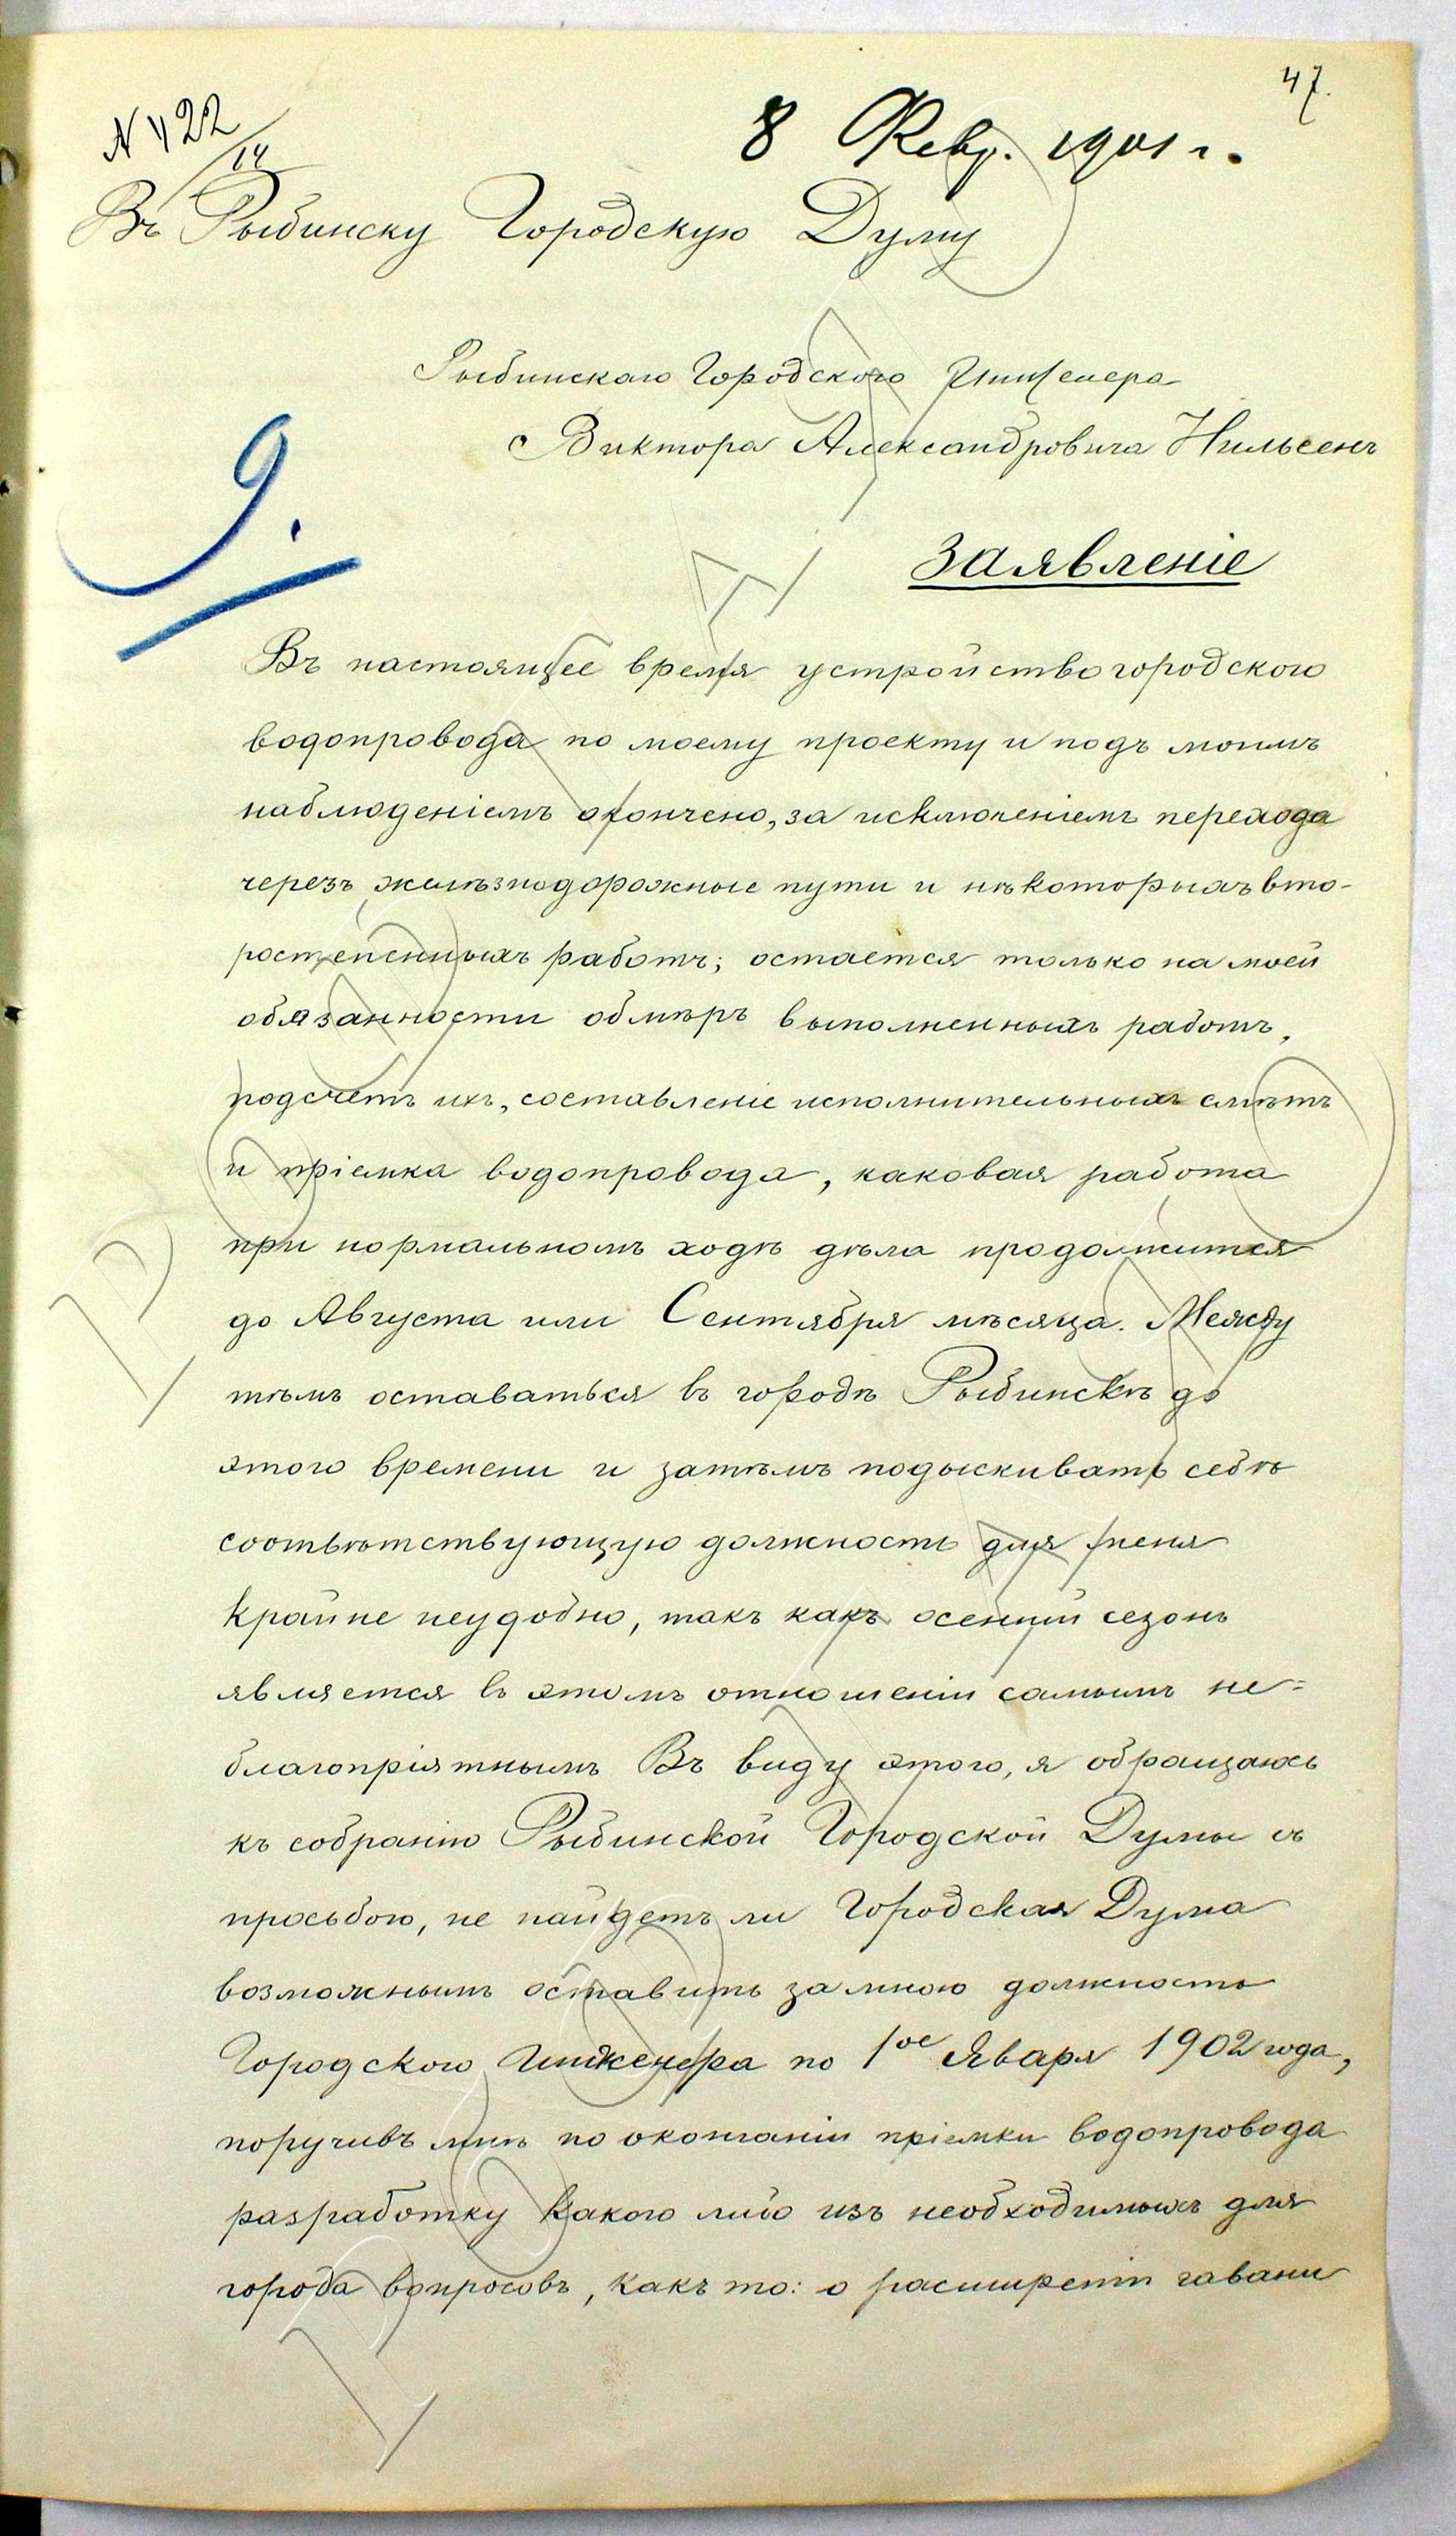 47.
N 422/14
8 Февр. 1901 г.
Въ Рыбинску Городскую Думу
Рыбинскаго Городского Инженера
Виктора Александровича Нильсенъ
9.
Заявленіе
Въ настоящее время устройство городского
водопровода по моему проекту и подъ моимъ
наблюденіемъ окончено, за исключеніемъ перехода
черезъ желѣзнодорожные пути и нѣкоторыхъ вто-
ростепенныхъ работъ; остается только на моей
обязанности обмѣръ выполненныхъ работъ,
подсчетъ ихъ, составленіе исполнительныхъ смѣтъ
и пріемка водопровода, каковая работа
при нормальномъ ходѣ дѣла продолжится
до Августа или Сентября мѣсяца. Между
тѣмъ оставаться въ городѣ Рыбинскѣ до
этого времени и затѣмъ подыскивать себѣ
соотвѣтствующую должность для меня
крайне неудобно, такъ какъ осенній сезонъ
является въ этомъ отношеніи самымъ не=
благопріятнымъ Въ виду этого, я обращаюсь
къ собранію Рыбинской Городской Думы съ
просьбою, не найдетъ ли Городская Дума
возможнымъ оставить за мною должность
Городского Инженера по 1ое Января 1902 года,
поручивъ мнѣ по окончаніи пріемки водопровода
разработку какого либо изъ необходимыхъ для
города вопросовъ, какъ то: о расширеніи гавани